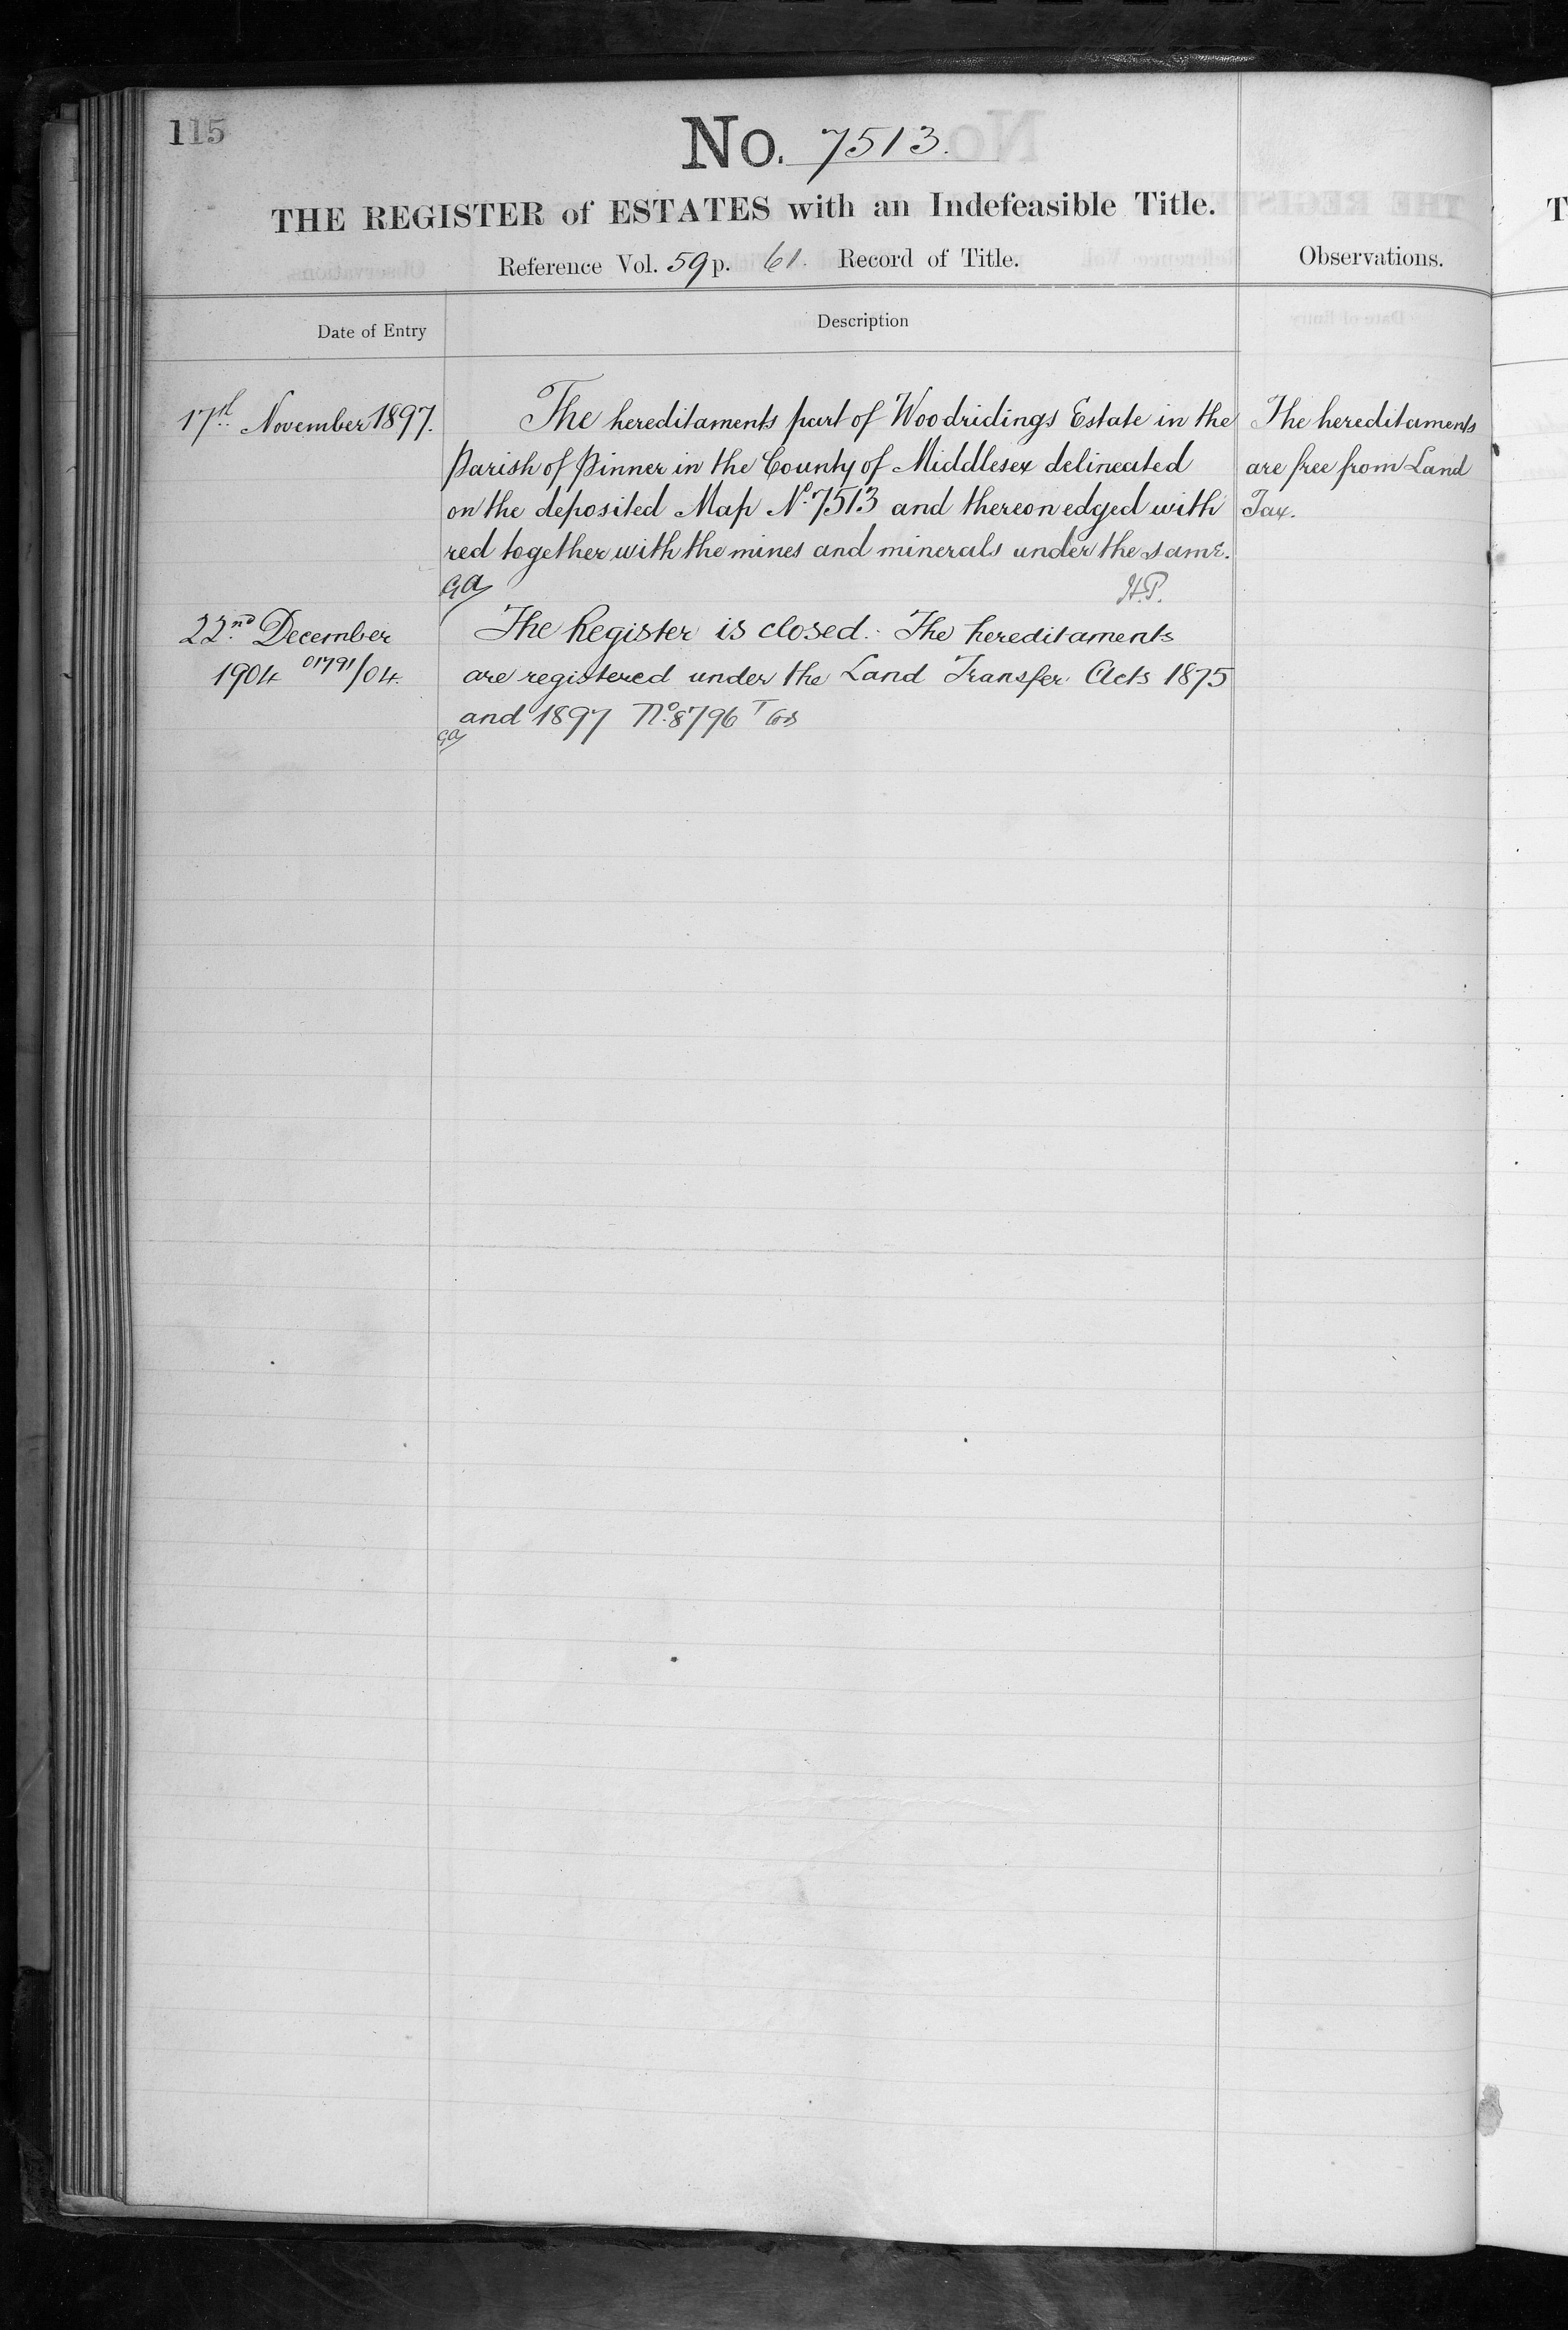 115
No. 7513.
THE REGISTER of ESTATES with an Indefeasible Title.
Reference Vol. 59 p. 61. Record of Title.
Observations.
Date of Entry
Description
17th November 1897.
The hereditaments part of Woodridings Estate in the
Parish of Pinner in the County of Middlesex delineated
on the deposited Map No. 7513 and thereon edged with
red together with the mines and minerals under the same.
GA
H.P.
The hereditaments
are free from Land
Tax.
22nd December
1904 01791/04.
The Register is closed. The hereditaments
are registered under the Land Transfer Acts 1875
and 1897 No. 8796
GA